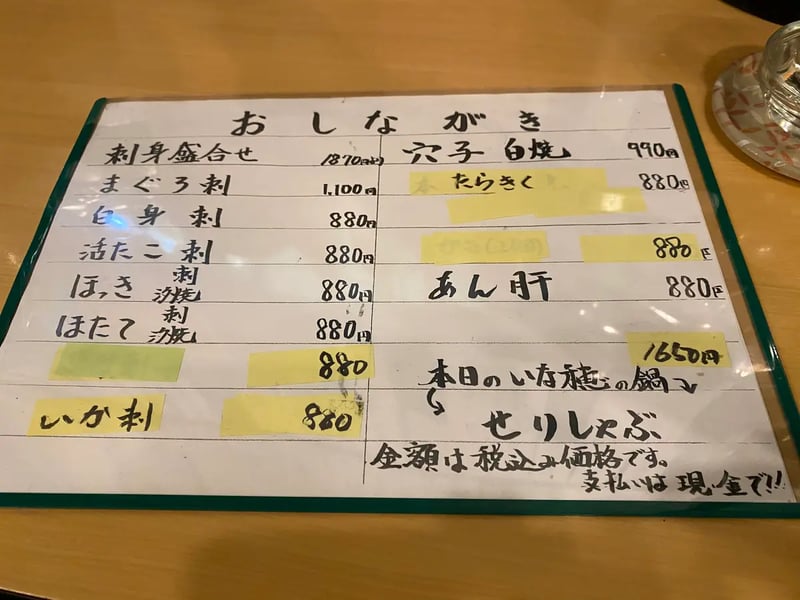 おしながき
刺身盛合せ 1870円
まぐろ刺 1,100円
白身刺 880円
活たこ刺 880円
ほっき 刺 汐焼 880円
ほたて 刺 汐焼 880円
880
いか刺 880
穴子 白焼 990円
たらきく 880円
880円
あん肝 880円
1650円
本日のいな穂の鍋
せりしゃぶ
金額は税込み価格です。
支払いは現金で!!